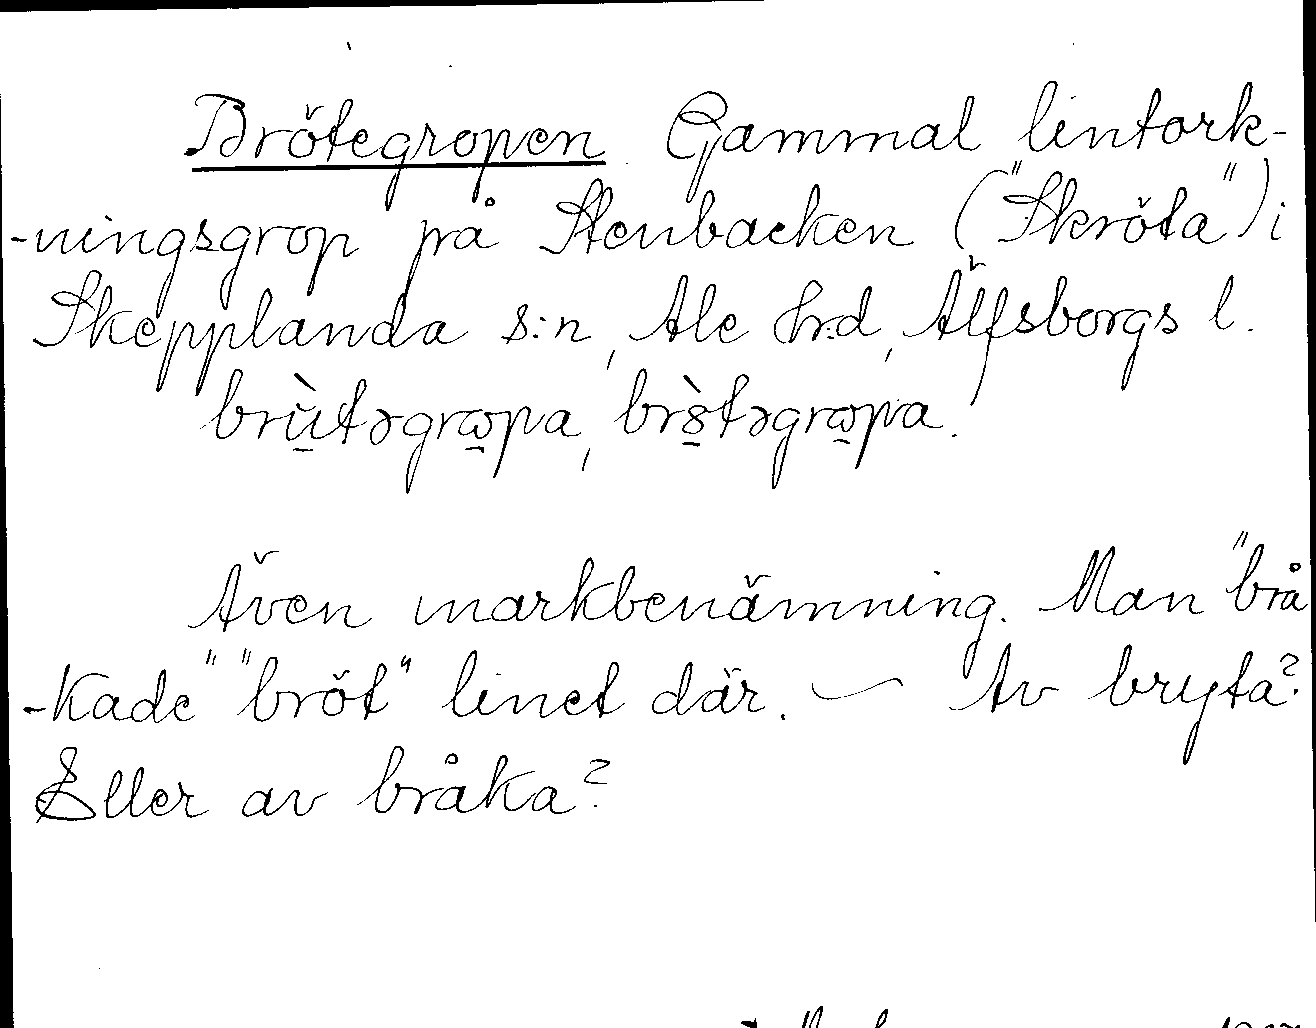 Brötegropen. Gammal lintork-
-ningsgrop på Stenbacken ("Skröta") i
Skepplanda s:n, Ale hrd, Älfsborgs l.

Även markbenämning. Man "brå
-kade" "bröt" linet där. — Av bryta?
Eller av bråka?